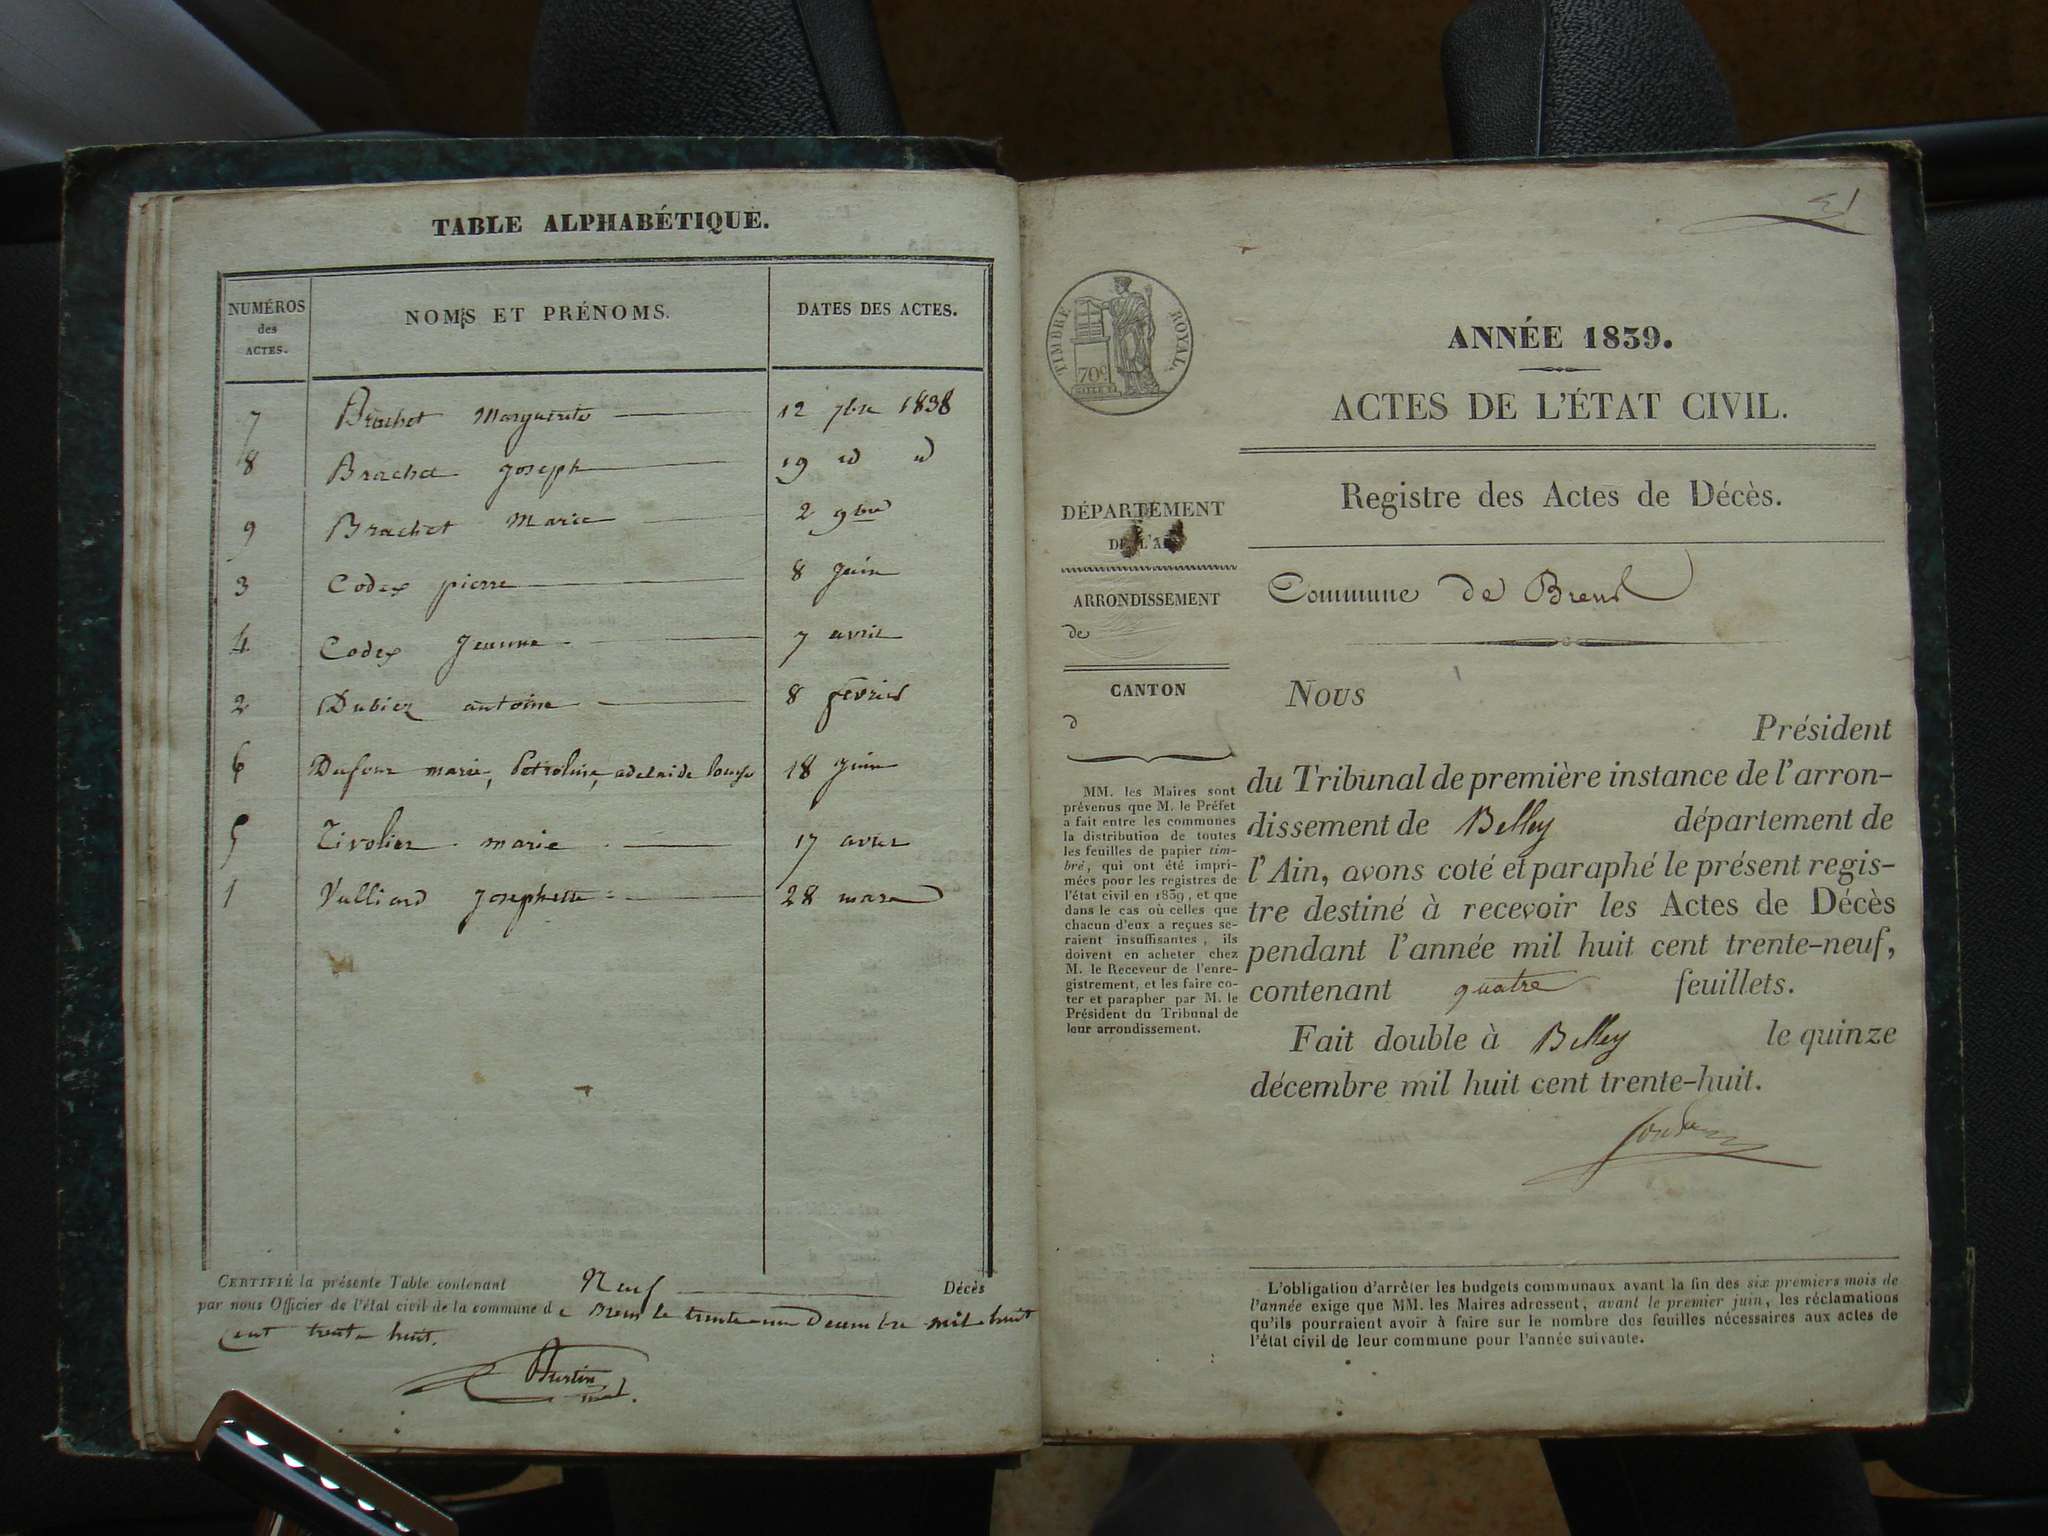 TABLE ALPHABÉTIQUE.
NUMÉROS des ACTES. NOMS ET PRÉNOMS. DATES DES ACTES.
7 Brachet Marguerite 12 7bre 1838
8 Brachet Joseph 19 id id
9 Brachet Marie 2 9bre
3 Codex pierre 8 Juin
4 Codex Jeanne 7 avril
2 Dubiez antoine 8 février
6 Dufour marie, Petroline, adelaide 18 Juin
5 Tivolier marie 17 avril
1 Vulliard Josephette 28 mars
CERTIFIÉ la présente Table contenant Neuf Décès
par nous Officier de l'état civil de la commune de Brens le trente un Decembre mil huit
cent trente huit.
ANNÉE 1839.
ACTES DE L'ÉTAT CIVIL.
Registre des Actes de Décès.
Commune de Brens
TIMBRE ROYAL.
70c
DÉPARTEMENT
DE L'AIN
ARRONDISSEMENT
de
CANTON
d
MM. les Maires sont
prévenus que M. le Préfet
a fait entre les communes
la distribution de toutes
les feuilles de papier tim-
bré, qui ont été impri-
mées pour les registres de
l'état civil en 1839, et que
dans le cas où celles que
chacun d'eux a reçues se-
raient insuffisantes, ils
doivent en acheter chez
M. le Receveur de l'enre-
gistrement, et les faire co-
ter et parapher par M. le
Président du Tribunal de
leur arrondissement.
Nous
Président
du Tribunal de première instance de l'arron-
dissement de Belley département de
l'Ain, avons coté et paraphé le présent regis-
tre destiné à recevoir les Actes de Décès
pendant l'année mil huit cent trente-neuf,
contenant quatre feuillets.
Fait double à Belley le quinze
décembre mil huit cent trente-huit.
L'obligation d'arrêter les budgets communaux avant la fin des six premiers mois de
l'année exige que MM. les Maires adressent, avant le premier juin, les réclamations
qu'ils pourraient avoir à faire sur le nombre des feuilles nécessaires aux actes de
l'état civil de leur commune pour l'année suivante.